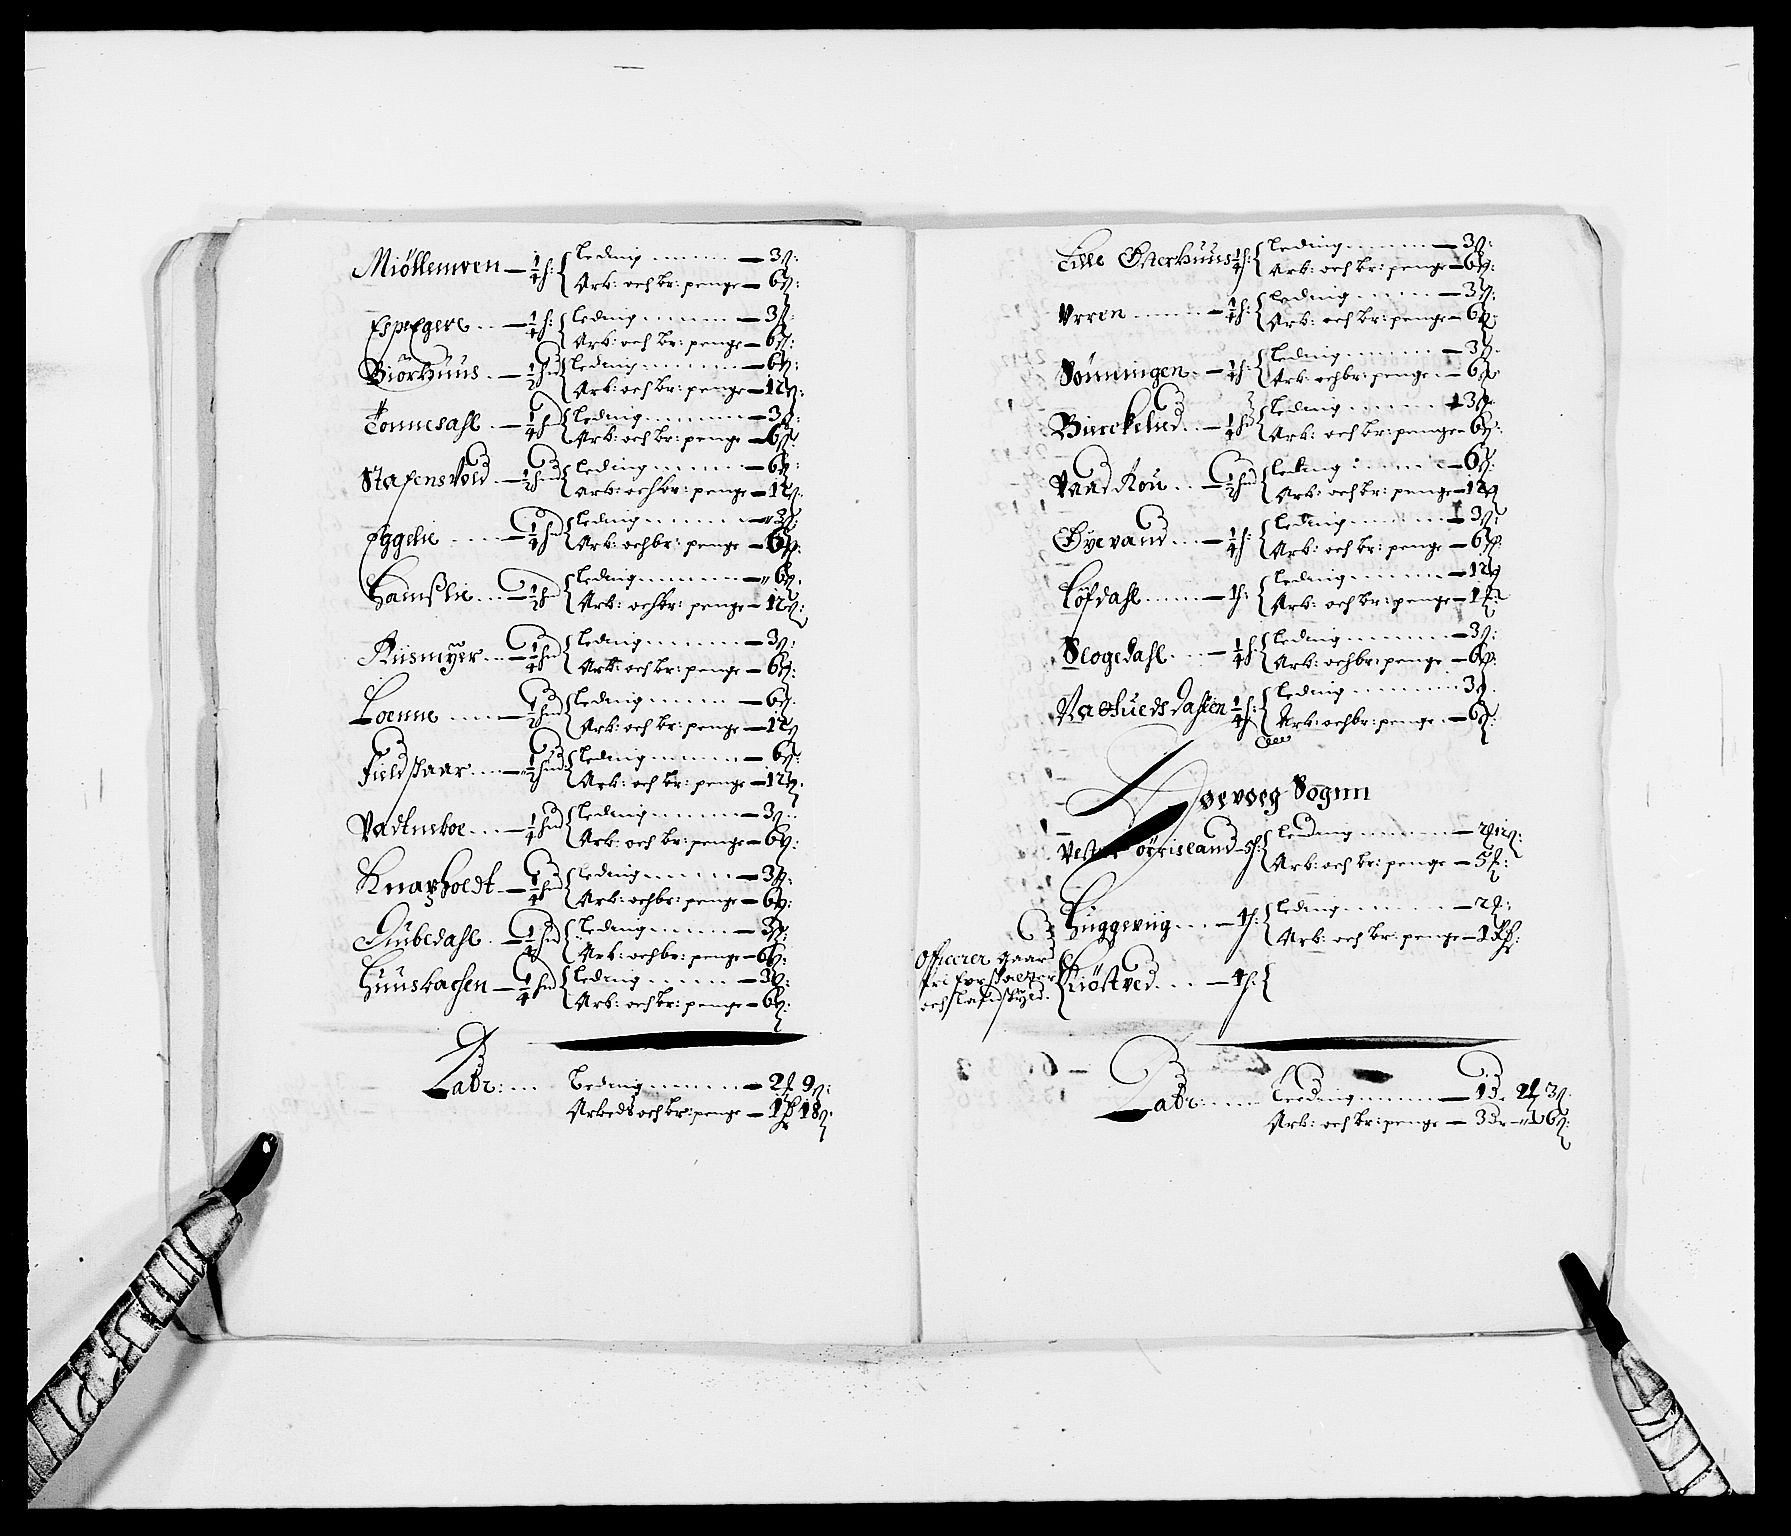 Miöllemren — 1/4 h: { leding — 3 ß:
Arb: och br: penge — 6 ß:
Espegere — 1/4 h: { leding — 3 ß:
Arb: och br: penge — 6 ß:
Biörhuus — 1/2 hud { leding — 6 ß:
Arb: och br: penge — 12 ß:
Tonnesahl — 1/4 h { leding — 3 ß:
Arb: och br: penge — 6 ß
Stafensvold — 1/2 hud { leding — 6 ß:
arb: och br: penge — 12 ß:
Eggelie — 1/4 hud { leding — 3 ß:
Arb: och br: penge — 6 ß:
Hamßlie — 1/2 h { leding — 6 ß:
Arb: och br: penge — 12 ß:
Riismyer — 1/4 hud { leding — 3 ß:
Arb: och br: penge — 6 ß:
Loenne — 1/2 hud { leding — 6 ß:
Arb: och br: penge — 12 ß
Fieldskaar — 1/2 hud: { leding — 6 ß:
Arb: och br: penge — 12 ß:
Vadtneboe — 1/4 hud { leding — 3 ß:
Arb: och br: penge — 6 ß:
Knapholdt — 1/4 hud { leding — 3 ß:
Arb: och br: penge — 6 ß:
Aubedahl — 1/4 hud { leding — 3 ß:
Arb: och br: penge — 6 ß:
Huusbachen — 1/4 hud { leding — 3 ß:
Arb: och br: penge — 6 ß:
Labr: Leding — 2 9 ß:
Arbedt och br: penge — 18 ß:
Lille Østerhuus 1/4 h: { leding — 3 ß:
Arb: och br: penge — 6 ß:
Urren — 1/4 h: { leding — 3 ß:
Arb: och br: penge — 6 ß:
Sönningen — 1/4 h: { leding — 3 ß:
Arb: och br: penge — 6 ß
Birckelid — 1/4 hd { leding — 3 ß:
Arb: och br: penge — 6 ß:
Vaad Kou — 1/2 hud { leding — 6 ß:
Arb: och br: penge — 12 ß
Øyevand — 1/4 h: { leding — 3 ß:
Arb: och br: penge — 6 ß:
Löfdahl — 1 h: { leding — 12 ß
Arb: och br: penge — 1
Scogedahl — 1/4 h: { leding — 3 ß:
Arb: och br: penge — 6 ß:
1/4 h: { leding 3 ß
Arb: och br: penge — 6 ß:
Høevoeg Sognn
Vester — 5 h: { leding — 2 12 ß:
Arb: och br: penge — 5
Huggeviig — 4 h: { leding — 2
Arb: och br: penge — 1
Officerer gaard
fri for skatter
och
Kiöstved — 4 h: {
Labr: Leeding — 1 dr 2 3 ß:
Arb: och br: penge — 3 dr 6 ß: